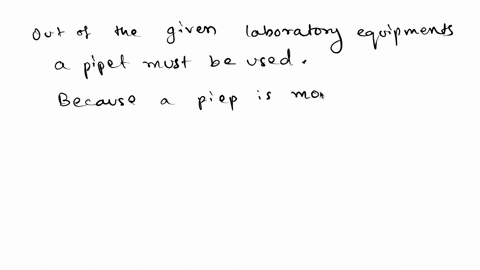 Out of the given laboratory equipments
a pipet must be used.
Because a piep is mo